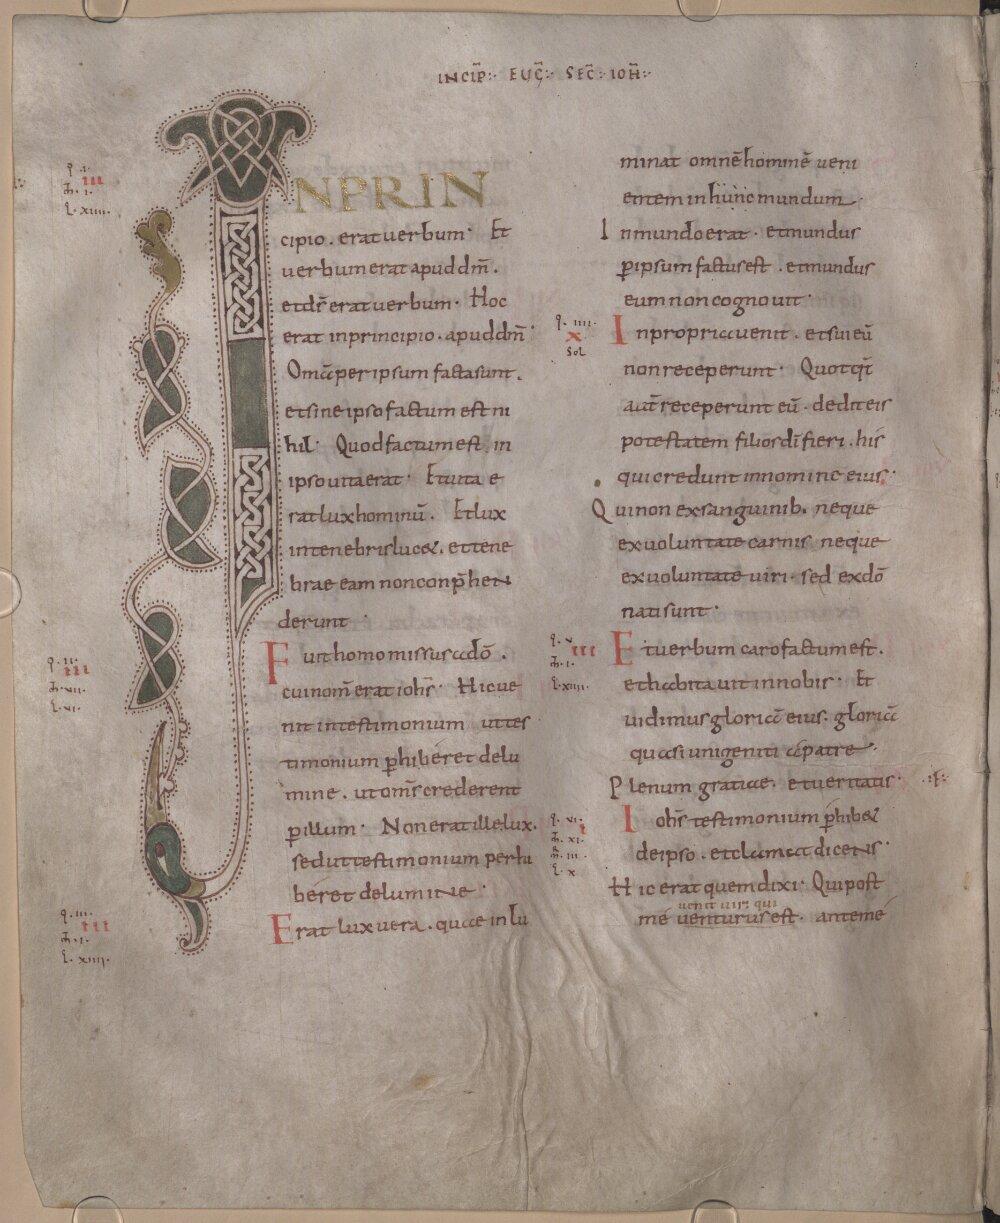 INCIP̄: EVḠ: SEC̄: IOH̄:
INPRIN
cipio. erat uerbum. Et
uerbum erat apud dm̄.
et ds̄ erat uerbum. Hoc
erat in principio. apud dm̄.
Om̄a per ipsum facta sunt.
et sine ipso factum est ni
hil. Quod factum est in
ipso uita erat. Et uita e
rat lux hominū. Et lux
in tenebris lucet. et tene
brae eam non conp̄hen
derunt.
Fuit homo missus a dō.
cui nom̄ erat iohs̄. Hic ue
nit in testimonium ut tes
timonium p̄hiberet de lu
mine. ut oms̄ crederent
ꝑ illum. Non erat ille lux.
sed ut testimonium perhi
beret de lumine.
Erat lux uera. quae inlu
minat omnē hominē ueni
entem in hunc mundum.
In mundo erat. et mundus
ꝑ ipsum factus est. et mundus
eum non cognouit.
In propria uenit. et sui eū
non receperunt. Quotqt̄
aut̄ receperunt eū. dedit eis
potestatem filios dī fieri. his
qui credunt in nomine eius.
Qui non ex sanguinib. neque
ex uoluntate carnis neque
ex uoluntate uiri. sed ex dō
nati sunt.
Et uerbum caro factum est.
et habitauit in nobis. Et
uidimus gloriā eius. gloriā
quasi unigeniti a patre.
Plenum gratiae. et ueritatis.
Iohs̄ testimonium p̄hibet
de ipso. et clamat dicens.
Hic erat quem dixi. Qui post
uenit uir qui
me uenturus est. ante me
q. i.
III
m̄. i.
l. xiiii.
q. ii.
III
m̄. vii.
l. vi.
q. iii.
III
m̄. i.
l. xiiii.
q. iiii.
X
Sol
q. v.
III
m̄. i.
l. xiiii.
q. vi.
I
m̄. xi.
l. x